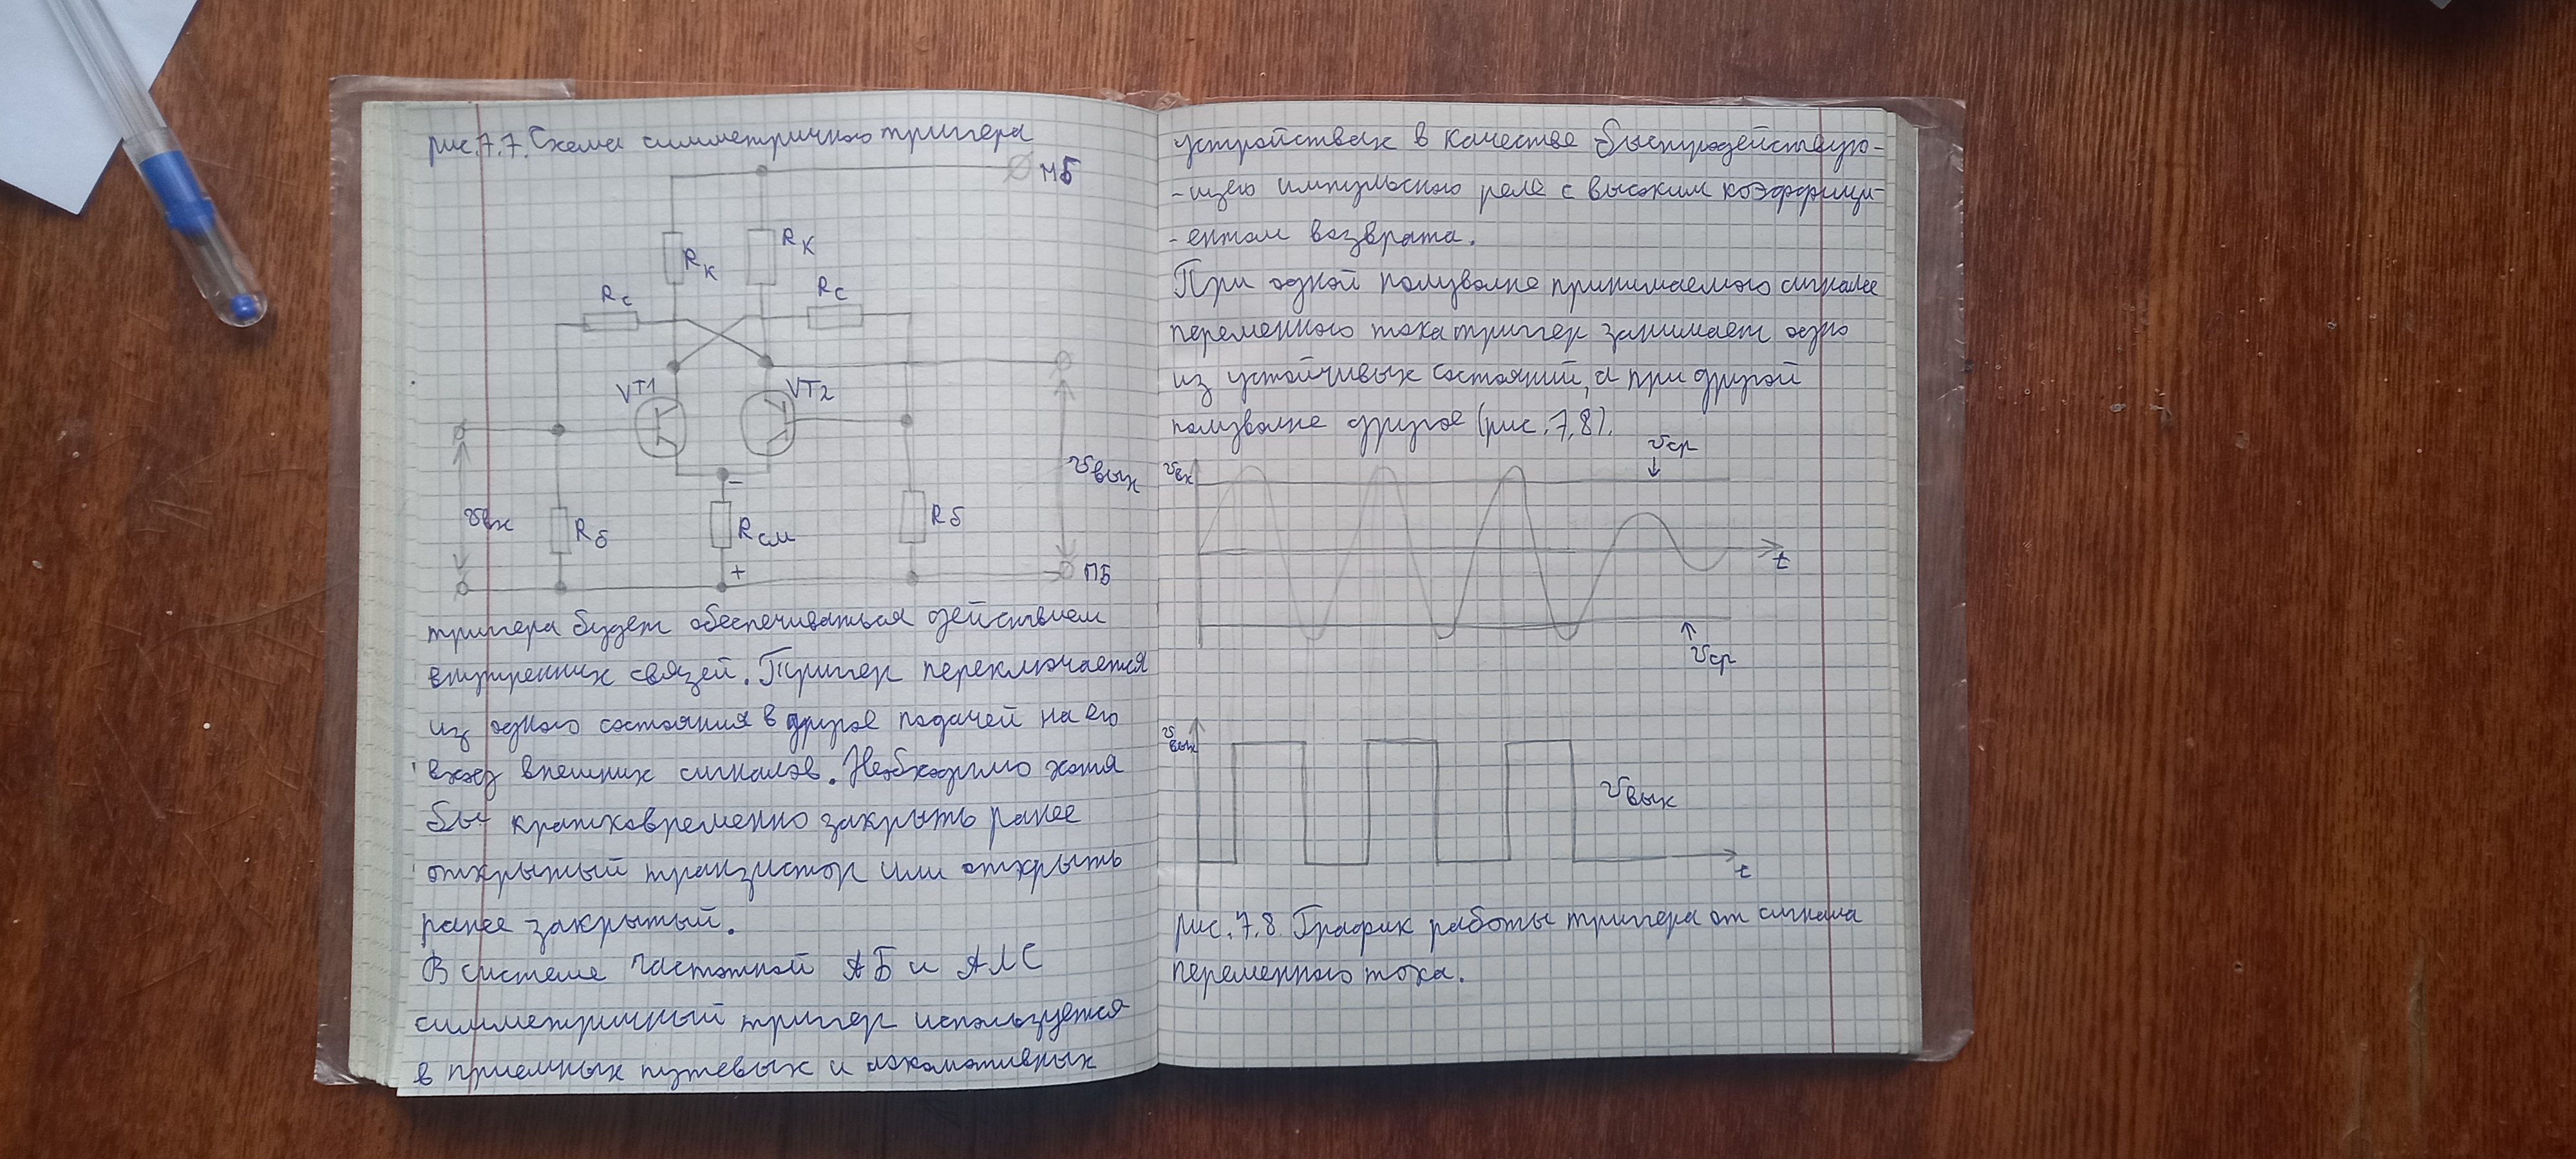 рис. 7.7. Схема симметричного тригера
МБ
Rк
Rк
Rс
Rс
VT1
VT2
Uвых
Uвх
Rб
Rсм
Rб
-
+
ПБ
тригера будет обеспечиваться действием
внутренних связей. Тригер переключается
из одного состояния в другое подачей на его
вход внешних сигналов. Необходимо хотя
бы кратковременно закрыть ранее
открытый транзистор или открыть
ранее закрытый.
В системе частотной АБ и АЛС
симметричный тригер используется
в приемных путевых и локомотивных
устройствах в качестве быстродействую-
-щего импульсного реле с высоким коэффици-
-ентом возврата.
При одной полуволне принимаемого сигнала
переменного тока тригер занимает одно
из устойчивых состояний, а при другой
полуволне другое (рис. 7,8).
Uср
Uвх
t
Uср
Uвых
Uвых
t
рис. 7.8 График работы тригера от сигнала
переменного тока.